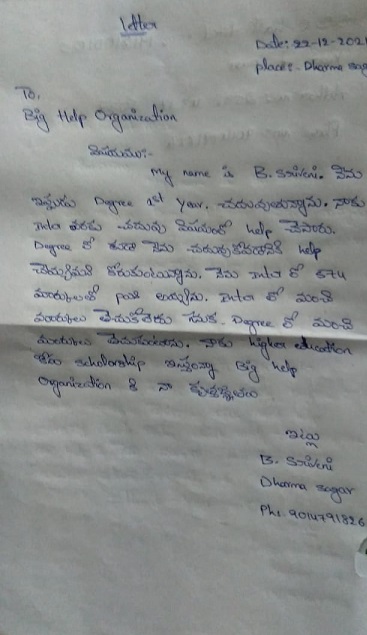 Letter
Date: 22-12-2021
place:- Dharma sag
To,
Big Help Organization
విషయము:-
My name is B. Sravani. నేను
ఇప్పుడు Degree 1st Year. చదువుతున్నాను. నాకు
Inter వరకు చదువు విషయంలో help చేసారు.
Degree లో కూడా నేను చదువుకోవడానికి help
చెయ్యమని కోరుకుంటున్నాను. నేను Inter లో 674
మార్కులతో pass అయ్యాను. Inter లో మంచి
మార్కులు తెచుకోలేదు Degree లో మంచి
మార్కులు తెచుకుంటాను. నాకు higher education
కోసం scholarship ఇస్తున్న Big help
Organization కి నా కృతజ్ఞతలు
ఇట్లు
B. Sravani
Dharma sagar
Ph:. 9014791826